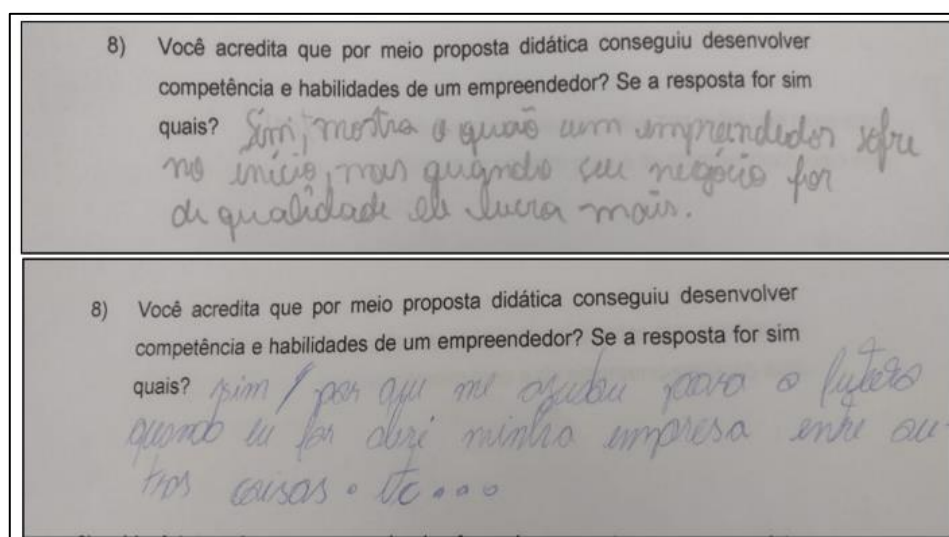 8) Você acredita que por meio proposta didática conseguiu desenvolver
competência e habilidades de um empreendedor? Se a resposta for sim
quais? Sim, mostra o quão um empreendedor sofre
no início, mas quando seu negócio for
de qualidade ele lucra mais.
8) Você acredita que por meio proposta didática conseguiu desenvolver
competência e habilidades de um empreendedor? Se a resposta for sim
quais? sim / por que me ajudou para o futuro
quando eu for minha empresa entre ou-
tras coisas. etc...